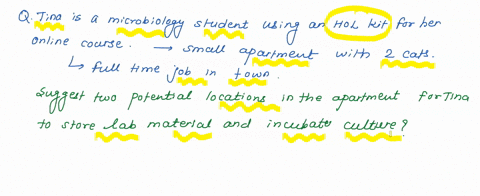 Q. Tina is a microbiology student using an HOL kit for her
online course. → small apartment with 2 cats.
↳ full time job in town.
Suggest two potential locations in the apartment for Tina
to store lab material and incubate culture?